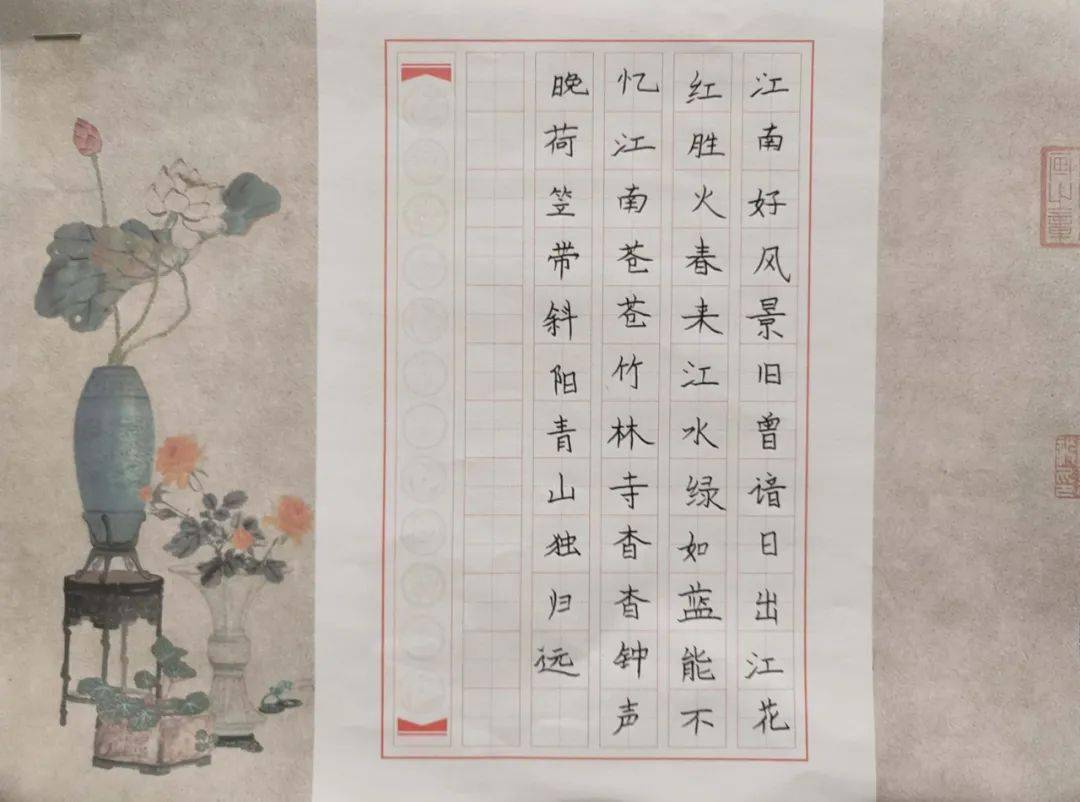 江南好风景旧曾谙日出江花
红胜火春来江水绿如蓝能不
忆江南苍苍竹林寺杳杳钟声
晚荷笠带斜阳青山独归远